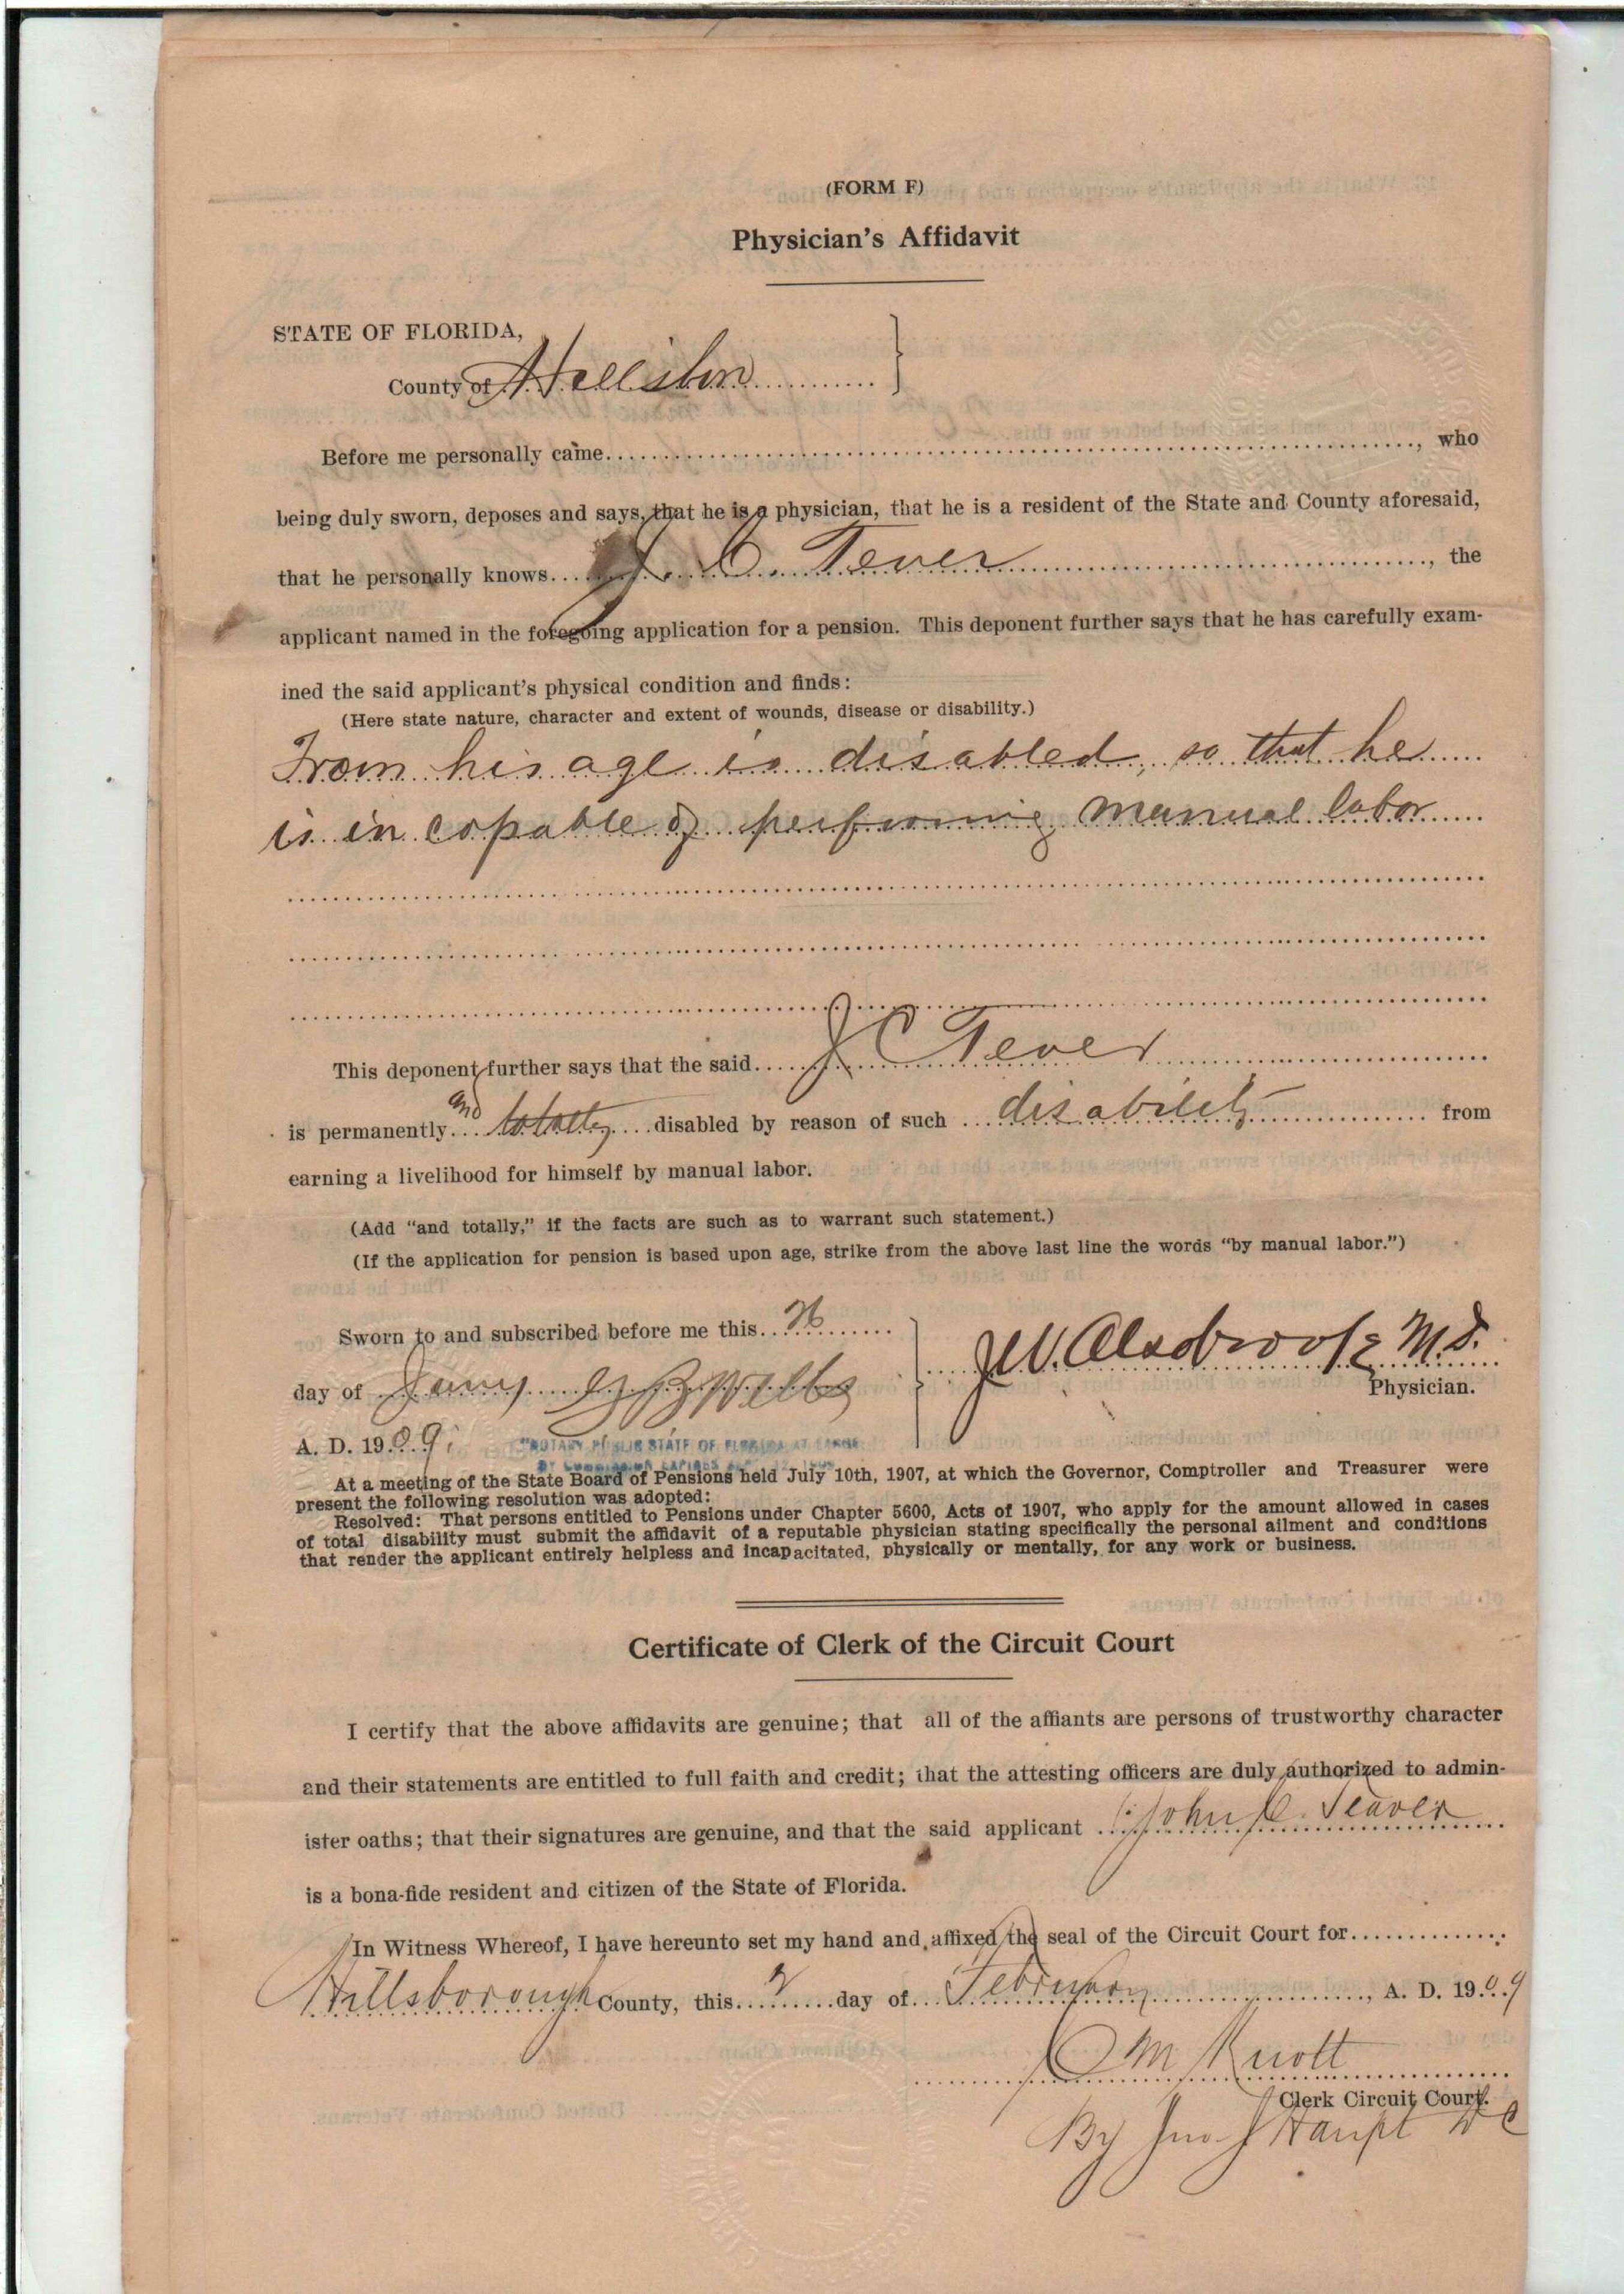 (FORM F)
Physician's Affidavit
STATE OF FLORIDA,
County of
Before me personally came, who
being duly sworn, deposes and says, that he is a physician, that he is a resident of the State and County aforesaid,
that he personally knows J. C. Tever, the
applicant named in the foregoing application for a pension. This deponent further says that he has carefully exam-
ined the said applicant's physical condition and finds:
(Here state nature, character and extent of wounds, disease or disability.)
From his age is disabled, so that he
is in capable of performing manual labor
This deponent further says that the said J C Tever
is permanently and totally disabled by reason of such disability from
earning a livelihood for himself by manual labor.
(Add "and totally," if the facts are such as to warrant such statement.)
(If the application for pension is based upon age, strike from the above last line the words "by manual labor.")
Sworn to and subscribed before me this 26
day of Jany
M.D.
Physician.
A. D. 1909.
"NOTARY PUBLIC STATE OF FLORIDA AT LARGE
At a meeting of the State Board of Pensions held July 10th, 1907, at which the Governor, Comptroller and Treasurer were
present the following resolution was adopted:
Resolved: That persons entitled to Pensions under Chapter 5600, Acts of 1907, who apply for the amount allowed in cases
of total disability must submit the affidavit of a reputable physician stating specifically the personal ailment and conditions
that render the applicant entirely helpless and incapacitated, physically or mentally, for any work or business.
Certificate of Clerk of the Circuit Court
I certify that the above affidavits are genuine; that all of the affiants are persons of trustworthy character
and their statements are entitled to full faith and credit; that the attesting officers are duly authorized to admin-
ister oaths; that their signatures are genuine, and that the said applicant John C. Teaver
is a bona-fide resident and citizen of the State of Florida.
In Witness Whereof, I have hereunto set my hand and affixed the seal of the Circuit Court for
Hillsborough County, this 2 day of February, A. D. 1909
M Knott
Clerk Circuit Court.
By Jno J Haupt D C